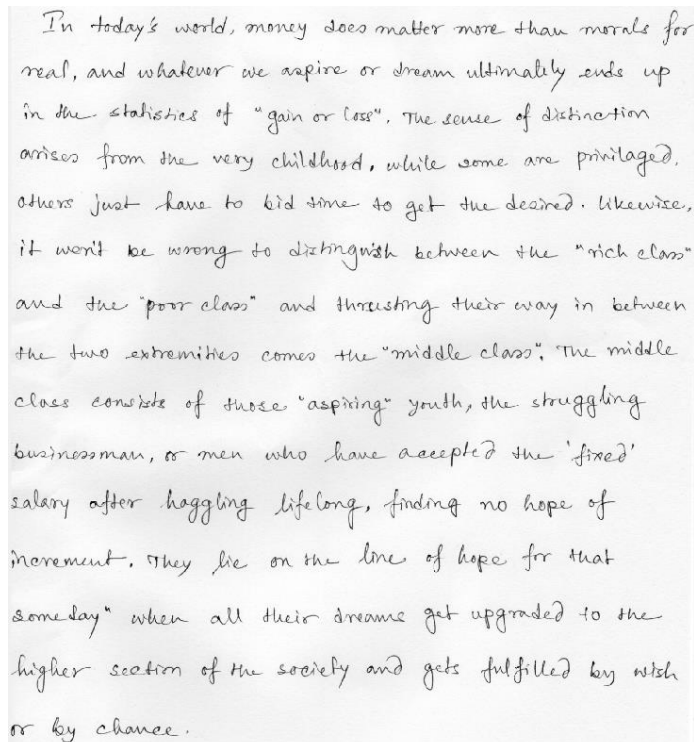 In today's world, money does matter more than morals for
real, and whatever we aspire or dream ultimately ends up
in the statistics of "gain or loss". The sense of distinction
arises from the very childhood, while some are privilaged,
others just have to bid time to get the desired. likewise,
it won't be wrong to distinguish between the "rich class"
and the "poor class" and thrusting their way in between
the two extremities comes the "middle class". The middle
class consists of those "aspiring" youth, the struggling
businessman, or men who have accepted the 'fixed'
salary after haggling lifelong, finding no hope of
increment. They lie on the line of hope for that
someday" when all their dreams get upgraded to the
higher section of the society and gets fulfilled by wish
or by chance.